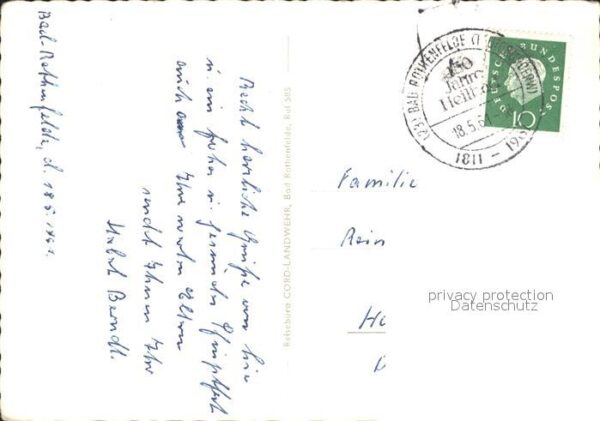 Bad-Rothenfelde, d. 18.5.1961.
Recht herzliche Grüße von hier
u. ein frohes u. gesundes Pfingstfest
auch Ihre werten Eltern
sendet Ihnen Ihr
Berndt.
Reisebüro CORD-LANDWEHR, Bad Rothenfelde, Ruf 585
(23) BAD ROTHENFELDE (T
Jahre
Heilb
18.5.6
1181 – 196
DEUTSCHE BUNDESPOST
10
Familie
Rein
H
privacy protection
Datenschutz